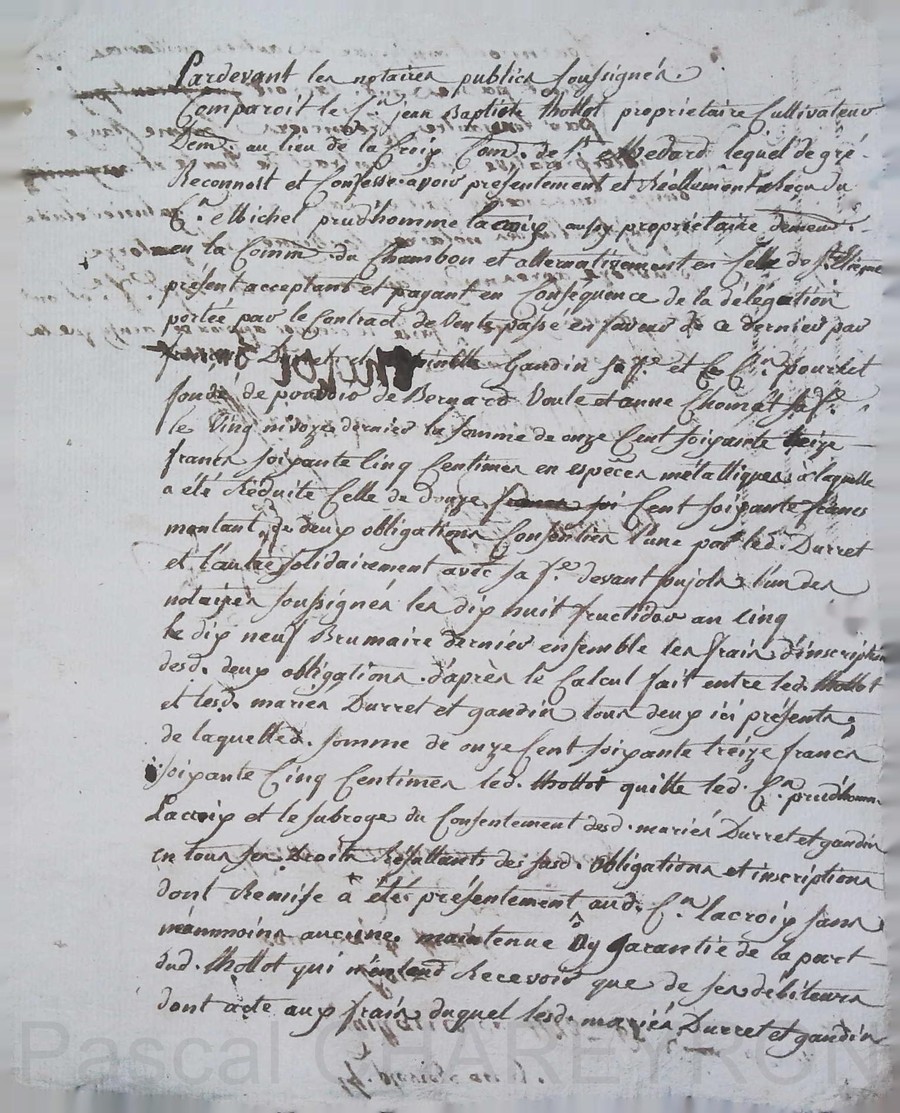 Pardevant les notaires publics soussignés.
Comparoit le Cn jean Baptiste thollot proprietaire Cultivateur
Dem. au lieu de la Croix Com. de St Medard lequel de gré
Reconnoit et Confesse avoir présentement et Réellement Reçu du
Cn Michel prudhomme lacroix aussy proprietaire demeut.
en la Comm. du Chambon et alternativement en Celle de St Etienne
présent acceptant et payant en Conséquence de la délégation
portée par le Contract de vente passé en faveur de ce dernier par
Durret et Gaudin sa fe et le Cn. pourret
fondé de pouvoir de Bernard Voule et anne Chomat sa fe.
le Vingt nivoze dernier la somme de onze Cent soixante treize
francs soixante Cinq Centimes en especes métalliques à laquelle
a été Réduite Celle de douze francs Cent soixante francs
montant de deux obligations Consenties l'une par led. Durret
et l'autre solidairement avec sa fe. devant pujols l'un des
notaires soussignés les dix huit fructidor an cinq
le dix neuf Brumaire dernier ensemble les frais d'inscription
desd. deux obligations d'après le Calcul fait entre led. thollot
et lesd. mariés Durret et gaudin tous deux ici présents,
de laquelled. somme de onze Cent soixante treize francs
soixante Cinq Centimes led. thollot quitte led. Cn. prudhomme
Lacroix et le subroge du Consentement desd. mariés Durret et gaudin
en tous ses Droits Résultants des susd. obligations et inscriptions
dont Remise à été présentement aud. Cn. lacroix sans
néanmoins aucune maintenue ny garantie de la part
dud. thollot qui n'entend Recevoir que de ses débiteurs
dont acte aux frais duquel lesd. mariés Durret et gaudin
Pascal CHAREYRON